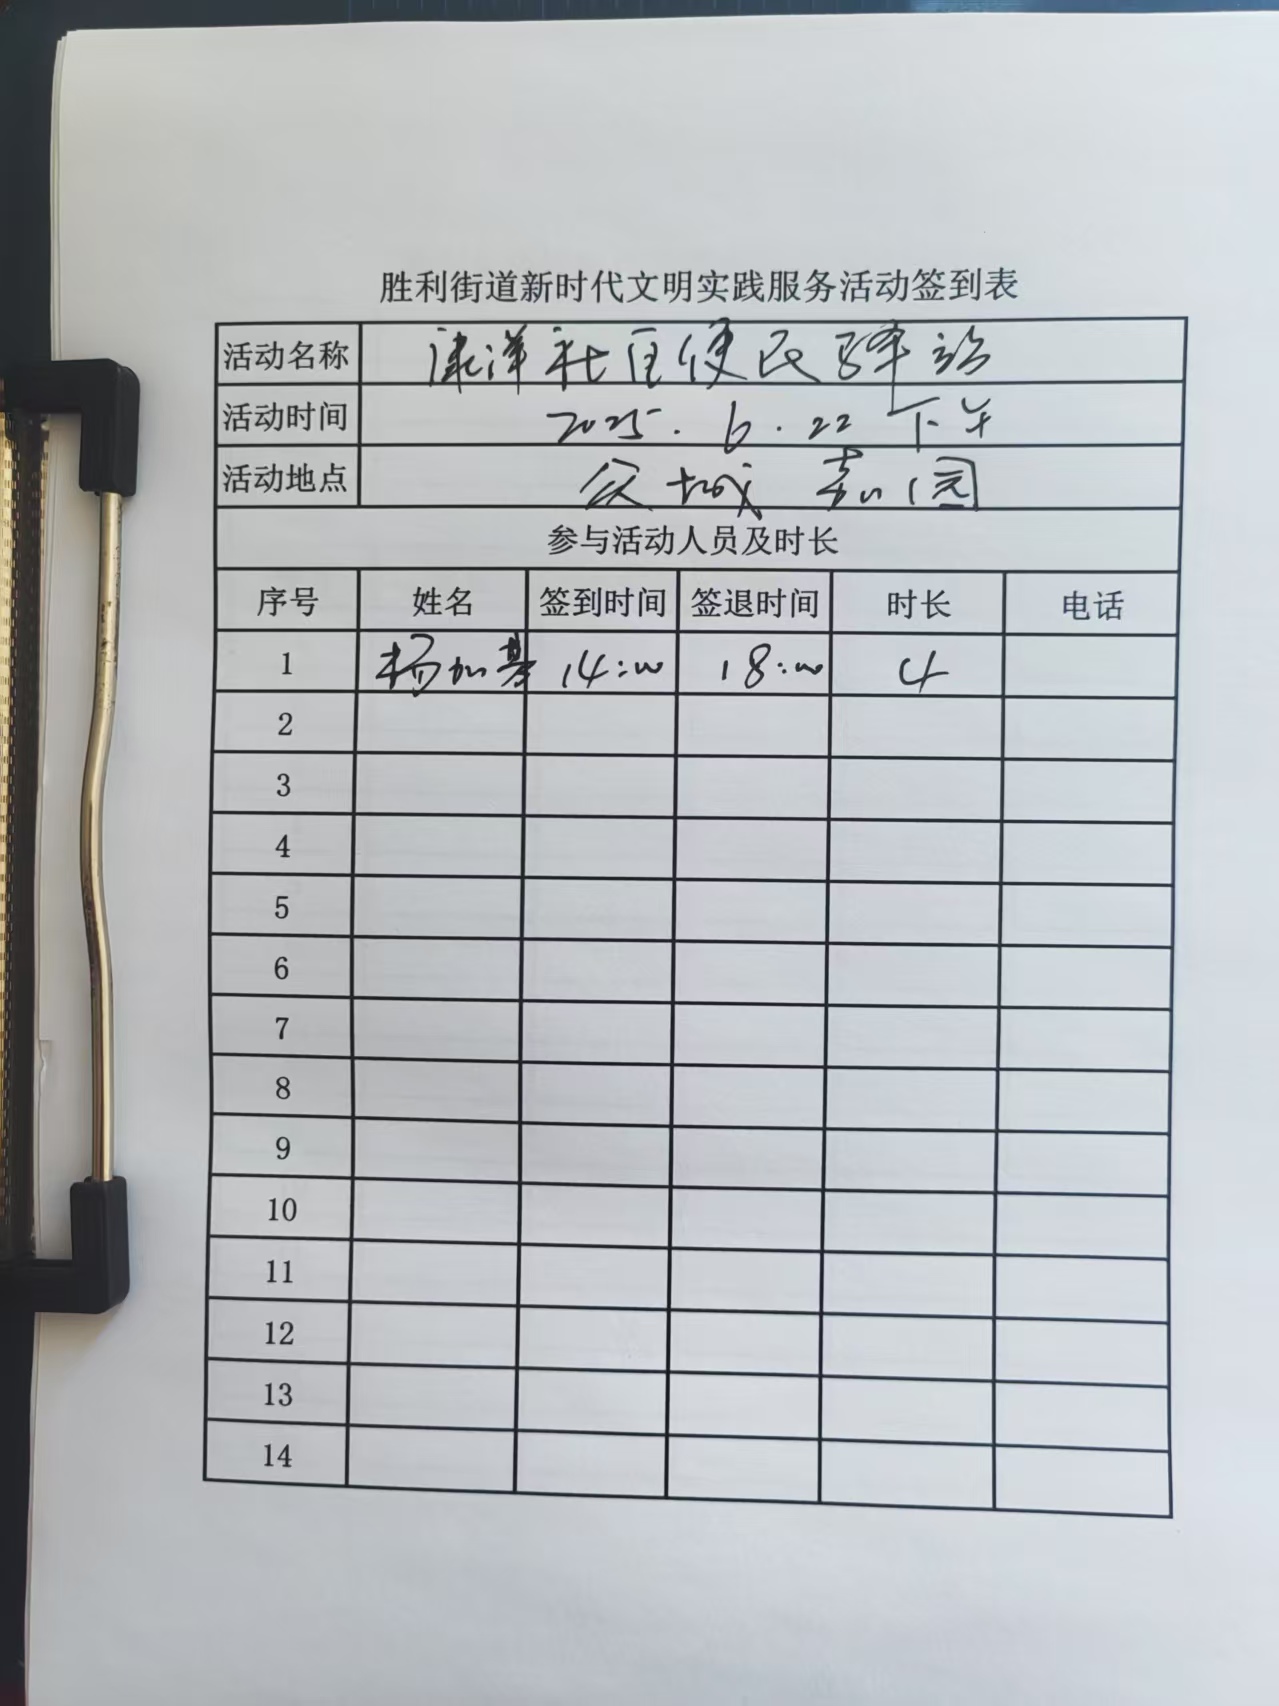 胜利街道新时代文明实践服务活动签到表
活动名称 康洋社区便民驿站
活动时间 2025.6.22 下午
活动地点 众城嘉园
参与活动人员及时长
序号 姓名 签到时间 签退时间 时长 电话
1 杨加基 14:00 18:00 4
2
3
4
5
6
7
8
9
10
11
12
13
14